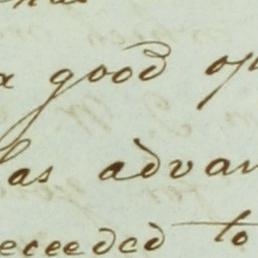 a good op
as advan
eceeded to